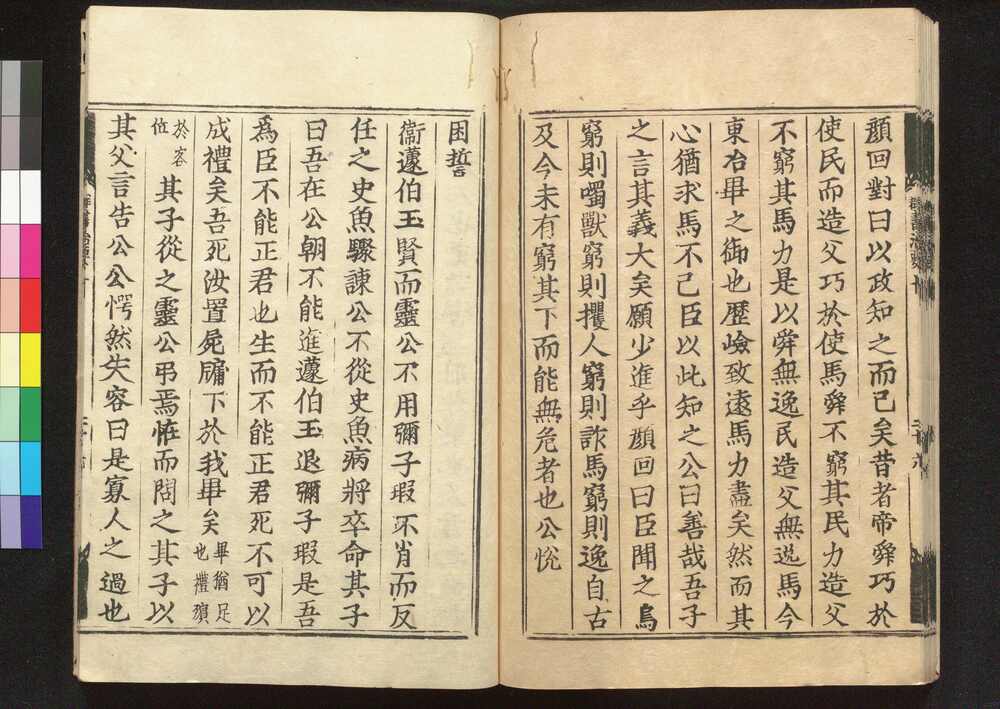 顏回對曰以政知之而已矣昔者帝舜巧於
使民而造父巧於使馬舜不窮其民力造父
不窮其馬力是以舜無逸民造父無逸馬今
東冶畢之御也歷嶮致遠馬力盡矣然而其
心猶求馬不已臣以此知之公曰善哉吾子
之言其義大矣願少進乎顏回曰臣聞之鳥
窮則噣獸窮則攫人窮則詐馬窮則逸自古
及今未有窮其下而能無危者也公悅
困誓
衞蘧伯玉賢而靈公不用彌子瑕不肖而反
任之史魚驟諫公不從史魚病將卒命其子
曰吾在公朝不能進蘧伯玉退彌子瑕是吾
爲臣不能正君也生而不能正君死不可以
成禮矣吾死汝置屍牖下於我畢矣畢猶足
也禮殯
於客
位其子從之靈公弔焉恠而問之其子以
其父言告公公愕然失容曰是寡人之過也